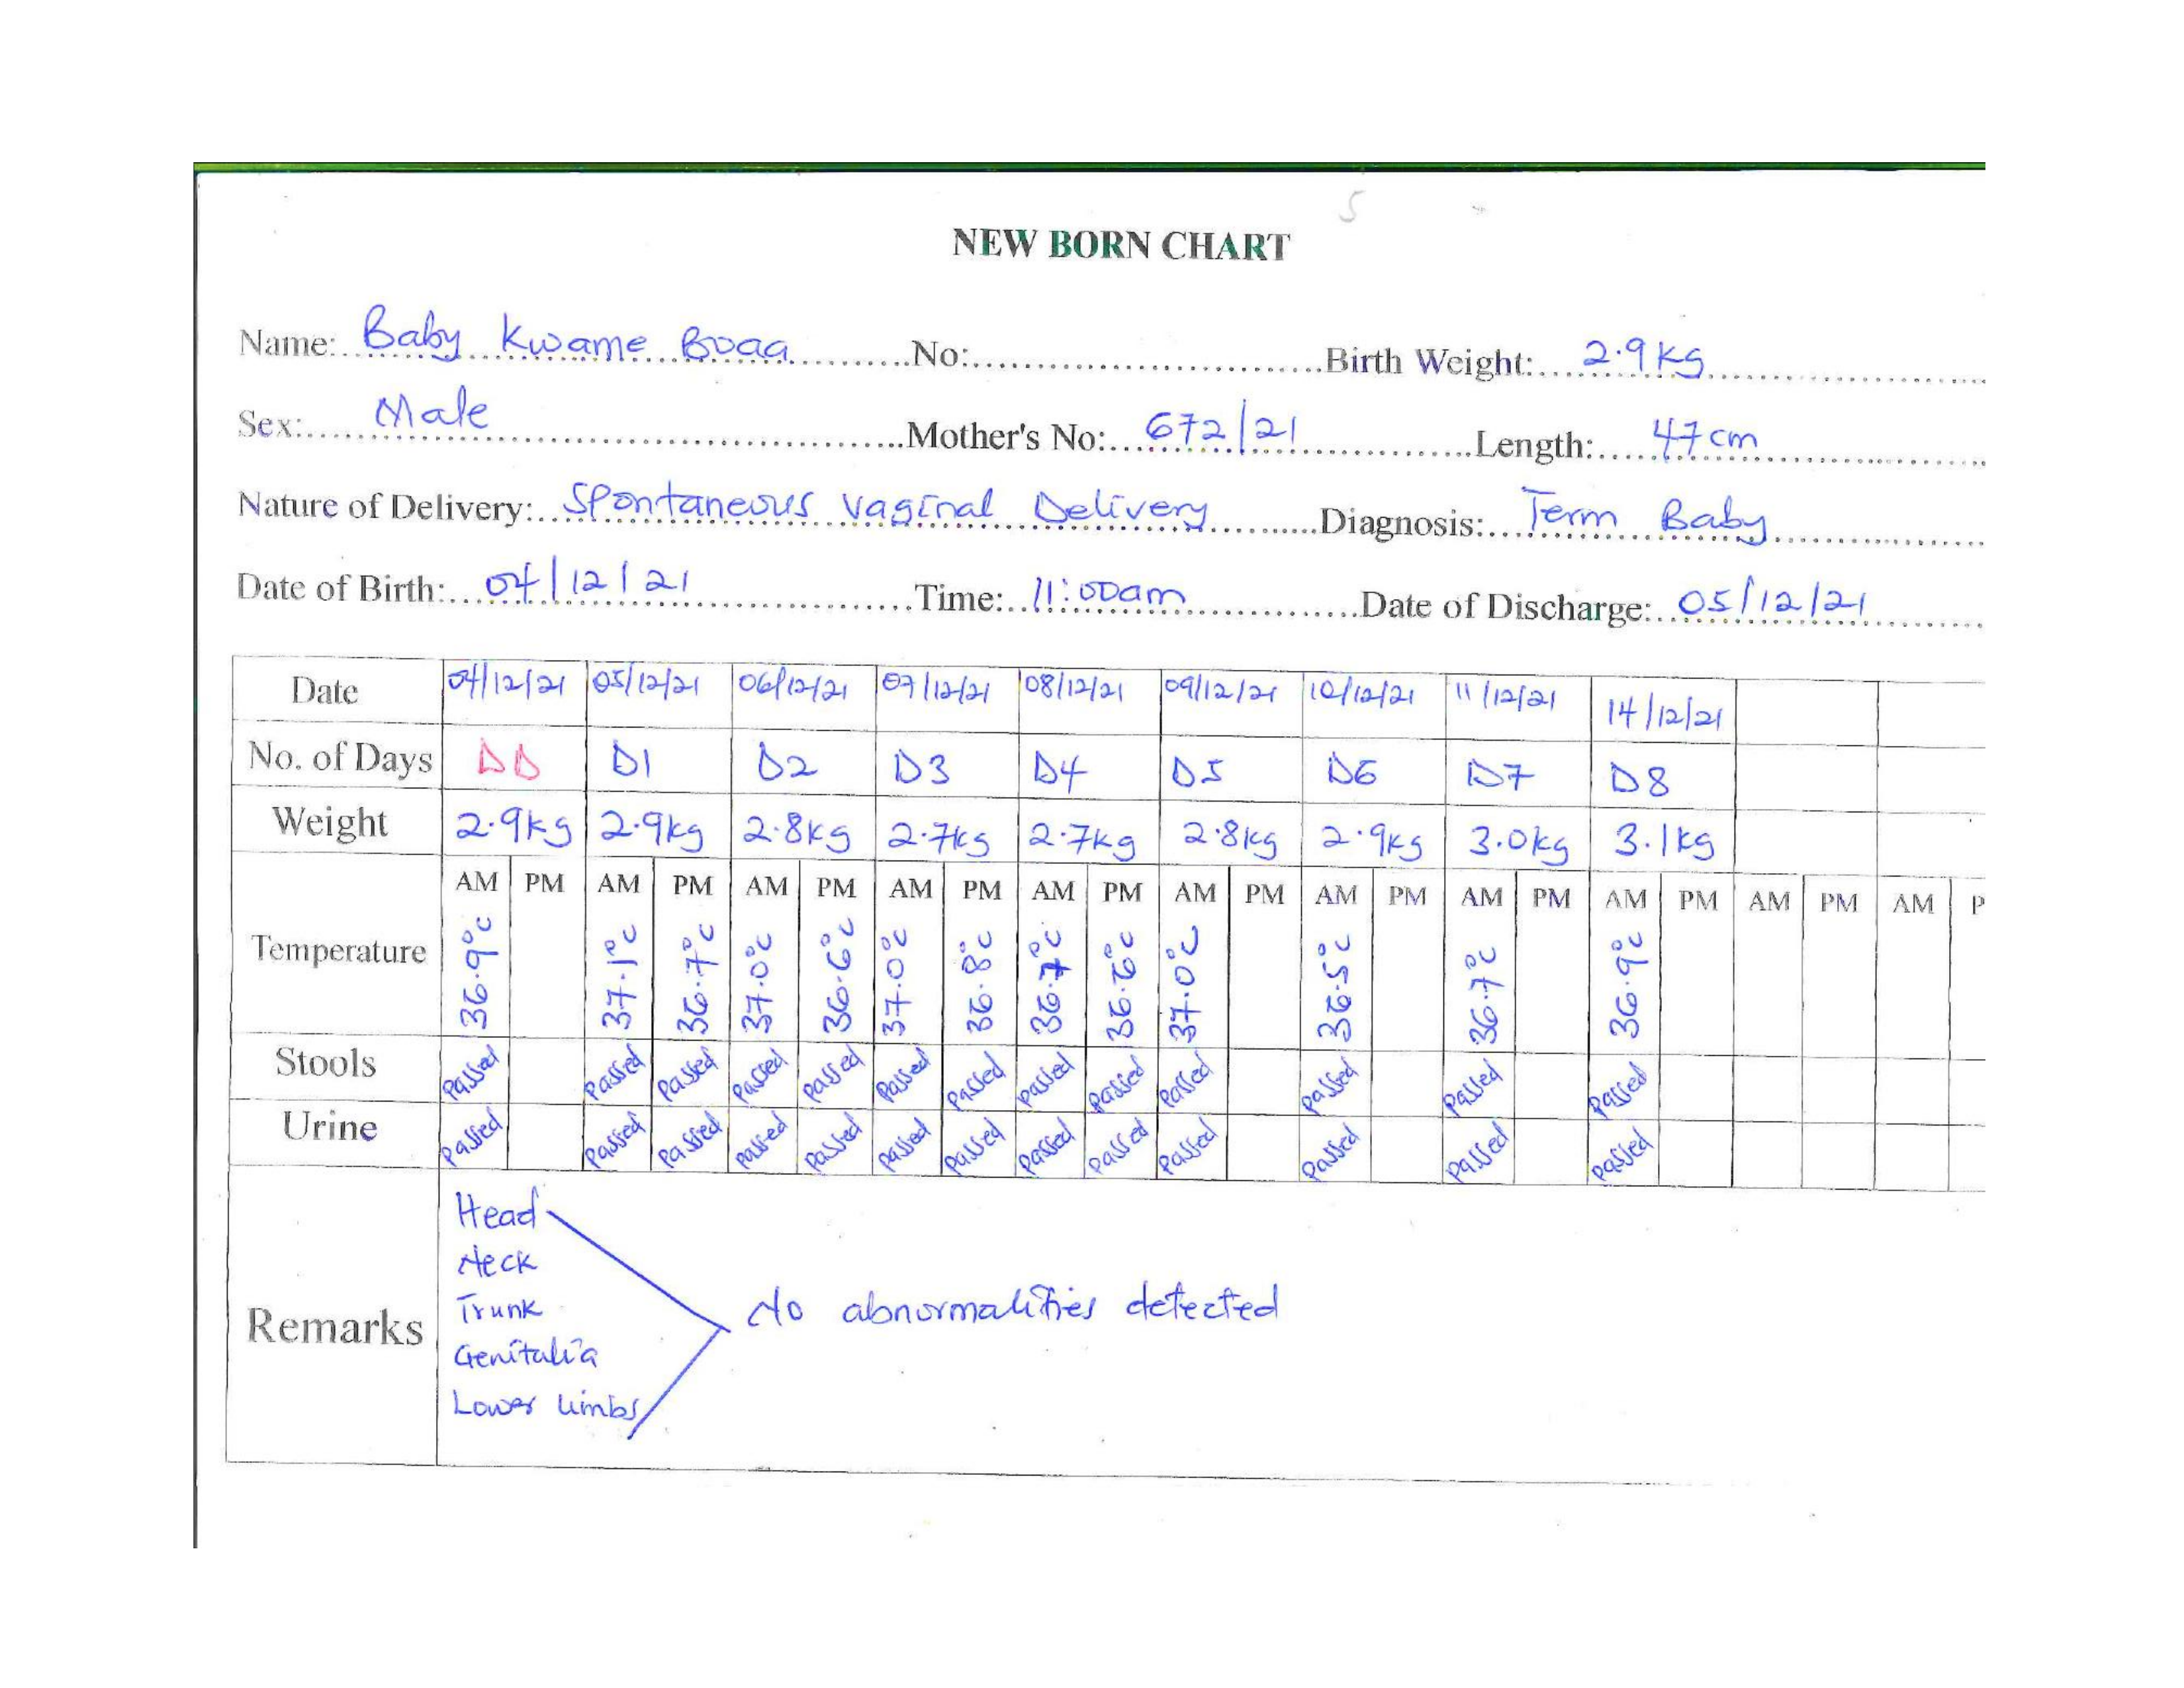 NEW BORN CHART
Name: Baby Kwame Boaa No: Birth Weight: 2.9kg
Sex: Male Mother's No: 672/21 Length: 47cm
Nature of Delivery: Spontaneous vaginal Delivery Diagnosis: Term Baby
Date of Birth: 04/12/21 Time: 11:00am Date of Discharge: 05/12/21
Date 04/12/21 05/12/21 06/12/21 07/12/21 08/12/21 09/12/21 10/12/21 11/12/21 14/12/21
No. of Days DD D1 D2 D3 D4 D5 D6 D7 D8
Weight 2.9kg 2.9kg 2.8kg 2.7kg 2.7kg 2.8kg 2.9kg 3.0kg 3.1kg
AM PM AM PM AM PM AM PM AM PM AM PM AM PM AM PM AM PM AM PM AM P
Temperature 36.9°c 37.1°c 36.7°c 37.0°c 36.6°c 37.0°c 36.8°c 36.7°c 36.6°c 37.0°c 36.5°c 36.7°c 36.9°c
Stools Passed Passed Passed Passed Passed Passed Passed Passed Passed Passed Passed Passed Passed
Urine Passed Passed Passed Passed Passed Passed Passed Passed Passed Passed Passed Passed Passed
Remarks
Head
Neck
Trunk
Genitalia
Lower limbs
No abnormalities detected